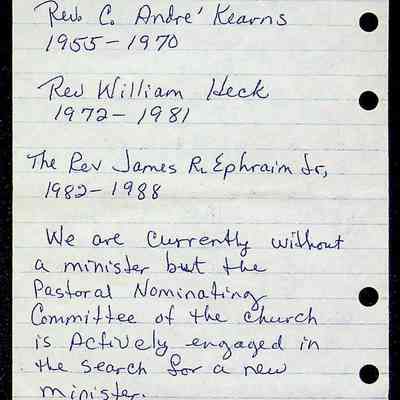 Rev. C. André Kearns
1955-1970
Rev William Heck
1972-1981
The Rev James R. Ephraim Jr,
1982-1988
We are currently without
a minister but the
Pastoral Nominating
Committee of the church
is Actively engaged in
the search for a new
minister.